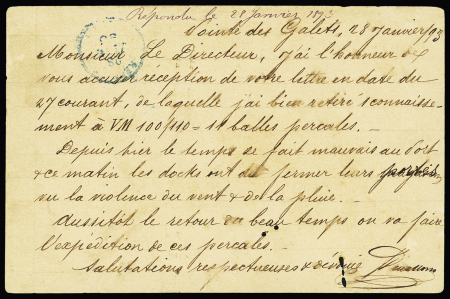 Répondu le 28 Janvier 1893
Pointe des Galets, 28 Janvier/93
Monsieur Le Directeur, j'ai l'honneur de
vous accuser réception de votre lettre en date du
27 courant, de laquelle j'ai bien retiré 1 connaisse-
ment à VM 100/110 = 11 balles percales. —
Depuis hier le temps se fait mauvais au Port
& ce matin les docks ont dû fermer leurs
vu la violence du vent & de la pluie. —
Aussitôt le retour du beau temps on va faire
l'expédition de ces percales. —
Salutations respectueuses & dévouées